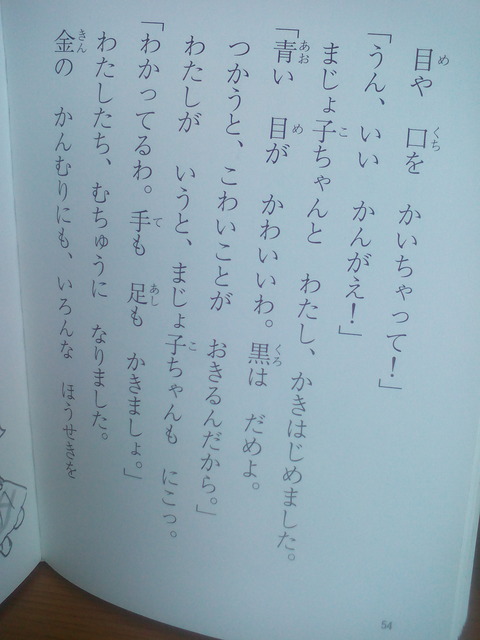 目や　口を　かいちゃって！」
「うん、いい　かんがえ！」
まじょ子ちゃんと　わたし、かきはじめました。
「青い　目が　かわいいわ。黒は　だめよ。
つかうと、こわいことが　おきるんだから。」
わたしが　いうと、まじょ子ちゃんも　にこっ。
「わかってるわ。手も　足も　かきましょ。」
わたしたち、むちゅうに　なりました。
金の　かんむりにも、いろんな　ほうせきを
54